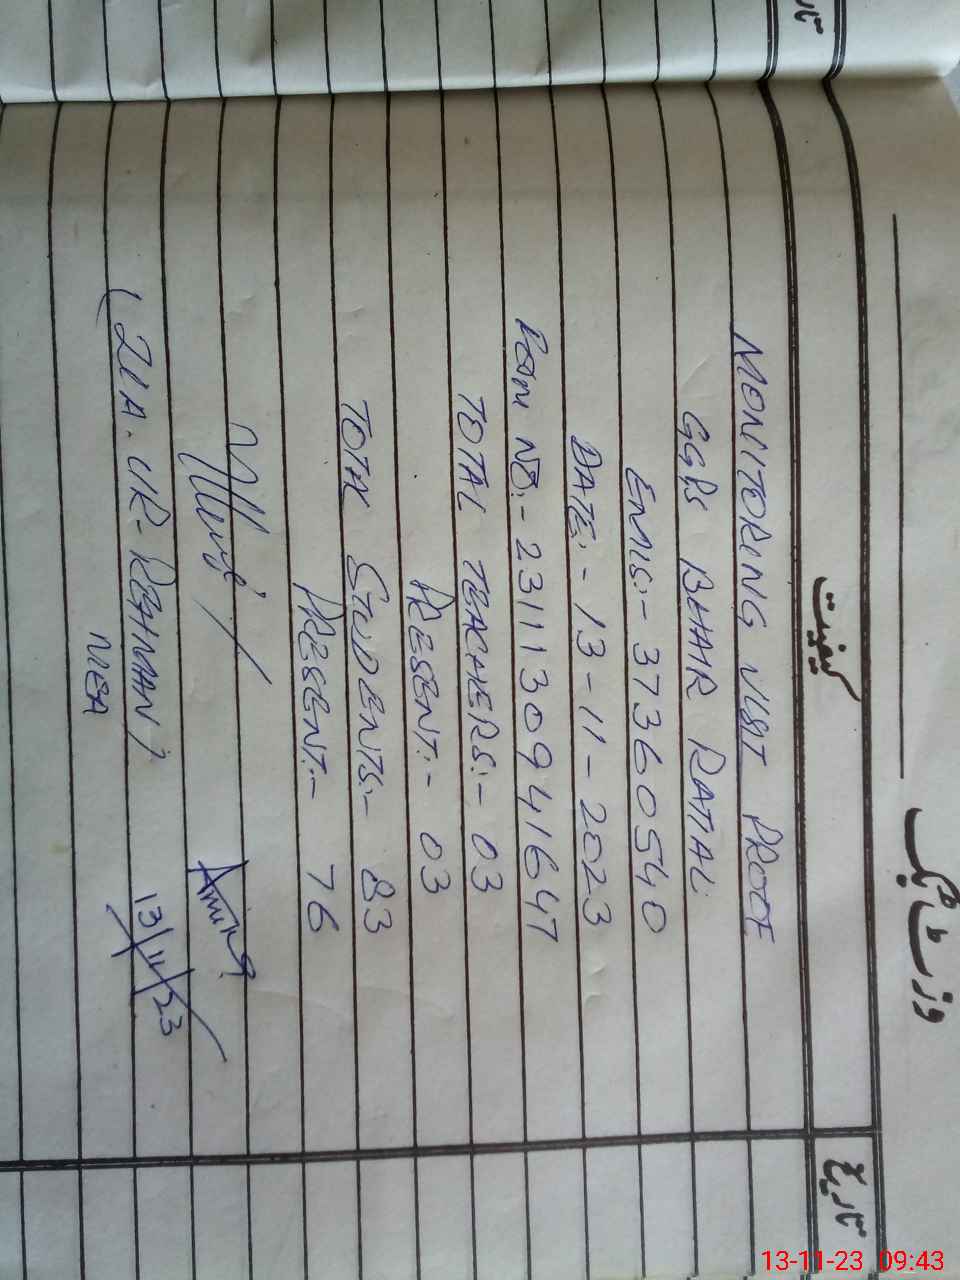 وزٹ بک
کیفیت
تاریخ
MONITORING VISIT PROOF
GGPS BEHAIR RATIAL
EMIS:- 37360540
DATE:- 13-11-2023
FORM NO:- 2311130941647
TOTAL TEACHERS:- 03
PRESENT:- 03
TOTAL STUDENTS:- 83
PRESENT:- 76
Amina
(ZIA-UR-REHMAN)
13/11/23
MEA
13-11-23 09:43